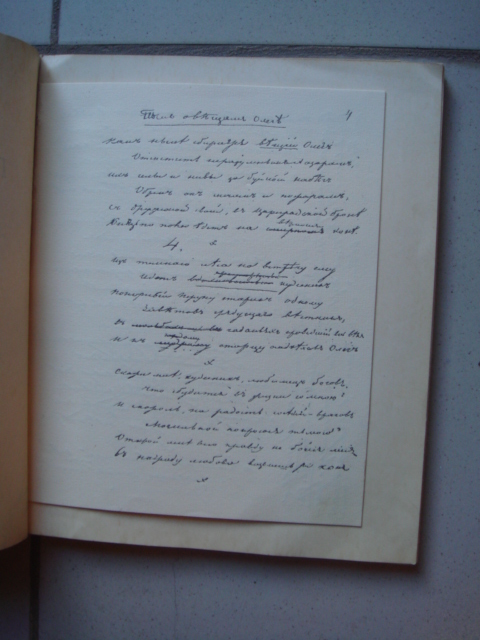 Пѣснь о вѣщемъ Олегѣ 4
Какъ нынѣ сбирается вѣщій Олегъ
Отмстить неразумнымъ хазарамъ,
Ихъ селы и нивы за буйный набѣгъ
Обрекъ онъ мечамъ и пожарамъ,
Съ дружиной своей, въ Цареградской бронѣ
вѣрномъ
на конѣ.
Изъ темнаго лѣса на встрѣчу ему
Идетъ кудесникъ
Покорный Перуну старикъ одному
Завѣтовъ грядущаго вѣстникъ,
Въ гаданьяхъ проведшій вѣкъ
И къ мудрому старцу подъѣхалъ Олегъ
Скажи мнѣ, кудесникъ, любимецъ боговъ,
Что сбудется въ жизни со мною?
И скоро ль, на радость враговъ
Могильной покроюсь землею?
Открой мнѣ всю правду, не бойся меня
Въ награду любова возмешь ты коня